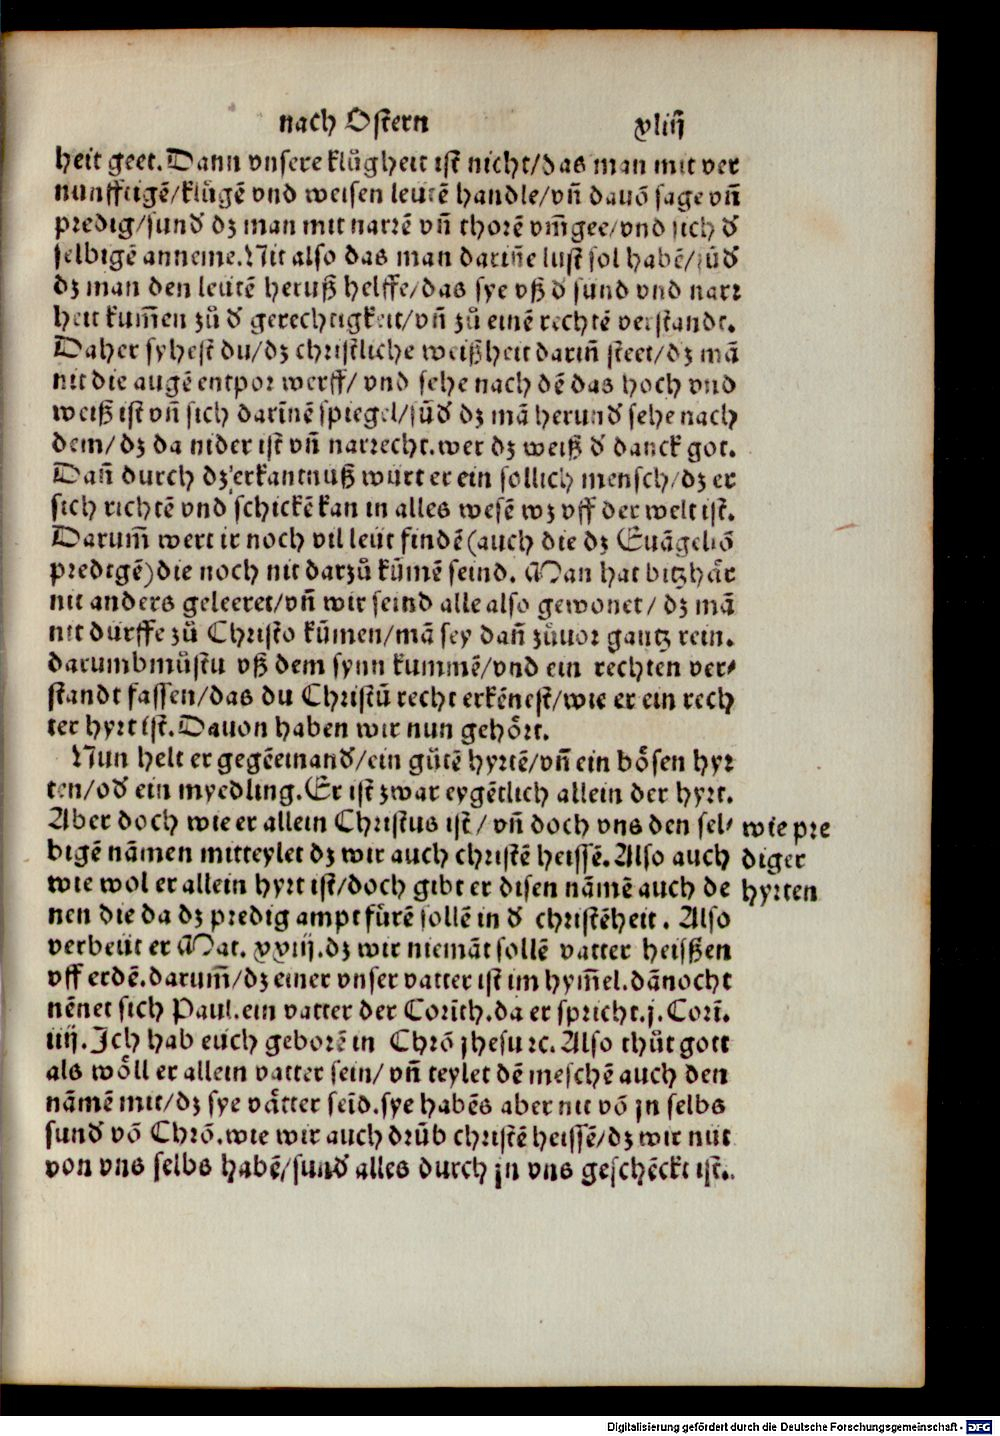 nach Ostern xliij
heit geet. Dann vnsere klůgheit ist nicht/das man mit ver
nunfftigẽ/klůgẽ vnd weisen leutẽ handle/vñ dauõ sage vñ
predig/sund̕ dz man mit narrẽ vñ thorẽ vm̃gee/vnd sich d̕
selbigẽ anneme. Nit also das man dariñe lust sol habẽ/sũd̕
dz man den leutẽ heruß helffe/das sye vß d̕ sund vnd narꝛ
heit kum̃en zů d̕ gerechtigkeit/vñ zů einẽ rechtẽ verstandt.
Daher syhest du/dz christliche weißheit dariñ steet/dz mã
nit die augẽ entpoꝛ werff/ vnd sehe nach dẽ das hoch vnd
weiß ist vñ sich darĩnẽ spiegel/sũd̕ dz mã herund̕ sehe nach
dem/ dz da nider ist vñ narrecht. wer dz weiß d̕ danck got.
Dañ durch dz erkantnuß würt er ein sollich mensch/dz er
sich richtẽ vnd schickẽ kan in alles wesẽ wz vff der welt ist.
Darum̃ wert ir noch vil leüt findẽ (auch die dz Euãgeliõ
predigẽ) die noch nit darzů kũmẽ seind. Man hat bitzhär
nit anders geleeret/vñ wir seind alle also gewonet/ dz mã
nit dürffe zů Christo kũmen/mã sey dañ zůuoꝛ gantz rein.
darumb můstu vß dem synn kummẽ/vnd ein rechten ver⸗
standt fassen/das du Christũ recht erkẽnest/wie er ein rech
ter hyrt ist. Dauon haben wir nun gehört.
Nun helt er gegẽeinand̕/ein gůtẽ hyrtẽ/vñ ein bösen hyr
ten/od̕ ein myedling. Er ist zwar eygẽtlich allein der hyrt.
Aber doch wie er allein Christus ist/ vñ doch vns den sel⸗
bigẽ nãmen mitteylet dz wir auch christẽ heissẽ. Also auch
wie wol er allein hyrt ist/doch gibt er disen nãmẽ auch de
nen die da dz predig ampt fũrẽ sollẽ in d̕ christẽheit. Also
verbeüt er Mat. xxiij. dz wir niemãt sollẽ vatter heissen
vff erdẽ. darum̃/dz einer vnser vatter ist im hym̃el. dãnocht
nẽnet sich Paul. ein vatter der Corĩth. da er spricht. j. Corĩ.
iiij. Ich hab euch geborẽ in Chrõ jhesu ꝛc. Also thůt gott
als wöll er allein vatter sein/ vñ teylet dẽ mẽschẽ auch den
nãmẽ mit/dz sye vätter seĩd. sye habẽs aber nit võ jn selbs
sund̕ võ Chrõ. wie wir auch drũb christẽ heissẽ/dz wir nüt
von vns selbs habẽ/sund̕ alles durch jn vns geschẽckt ist.
wie pre
diger
hyrten
Digitalisierung gefördert durch die Deutsche Forschungsgemeinschaft - DFG